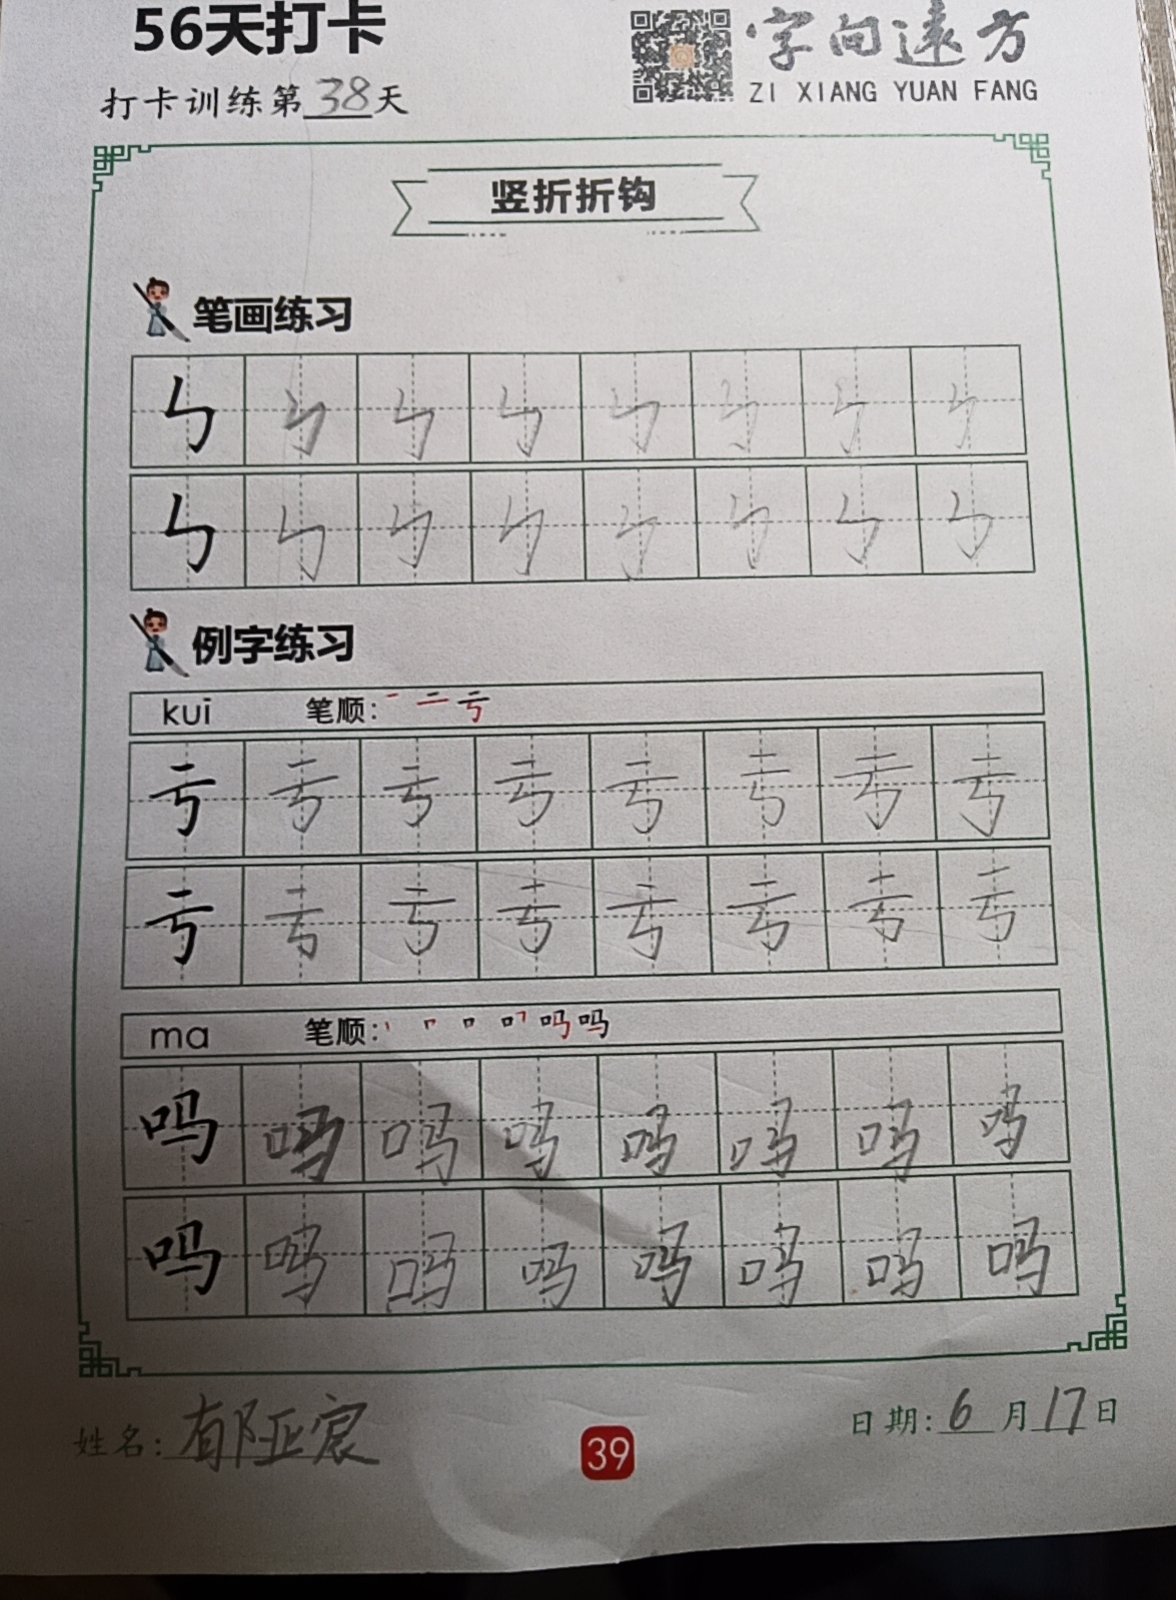 56天打卡
字向远方
打卡训练第38天
ZI XIANG YUAN FANG
竖折折钩
笔画练习
ㄣ ㄣ ㄣ ㄣ ㄣ ㄣ ㄣ ㄣ
ㄣ ㄣ ㄣ ㄣ ㄣ ㄣ ㄣ ㄣ
例字练习
kui 笔顺: 一 二 亏
亏 亏 亏 亏 亏 亏 亏 亏
亏 亏 亏 亏 亏 亏 亏 亏
ma 笔顺: 吗
吗 吗 吗 吗 吗 吗 吗 吗
吗 吗 吗 吗 吗 吗 吗 吗
姓名: 郁亚宸
39
日期: 6月17日